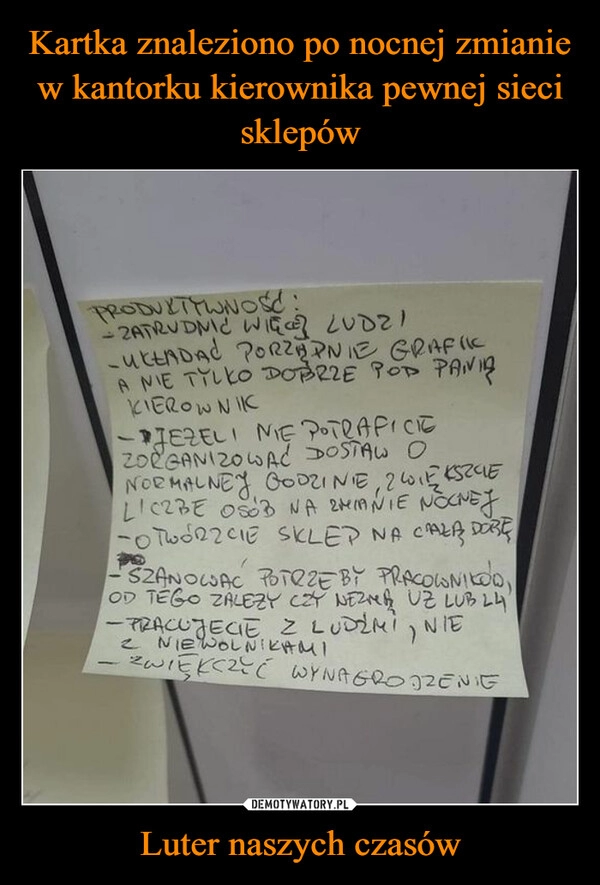 Kartka znaleziono po nocnej zmianie
w kantorku kierownika pewnej sieci
sklepów
PRODUKTYWNOŚĆ:
- ZATRUDNIĆ WIĘCEJ LUDZI
- UKŁADAĆ PORZĄDNIE GRAFIK
A NIE TYLKO DOBRZE POD PANIĄ
KIEROWNIK
- JEŻELI NIE POTRAFICIE
ZORGANIZOWAĆ DOSTAW O
NORMALNEJ GODZINIE, ZWIĘKSZCIE
LICZBE OSÓB NA ZMIANIE NOCNEJ
- OTWÓRZCIE SKLEP NA CAŁĄ DOBĘ
- SZANOWAĆ POTRZEBY PRACOWNIKÓW,
OD TEGO ZALEŻY CZY WEZMĄ UŻ LUB L4
- PRACUJECIE Z LUDŹMI, NIE
Z NIEWOLNIKAMI
- ZWIĘKCZYĆ WYNAGRODZENIE
DEMOTYWATORY.PL
Luter naszych czasów